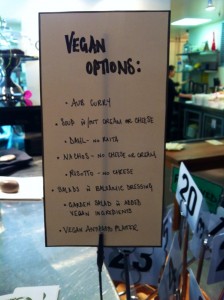 VEGAN
OPTIONS:
• AUB CURRY
• SOUP w/OUT CREAM OR CHEESE
• DAHL - NO RAITA
• NACHOS - NO CHEESE OR CREAM
• RISOTTO - NO CHEESE
• SALADS & BALSAMIC DRESSING
• GARDEN SALAD & ADDED
VEGAN INGREDIENTS
• VEGAN ANTIPASTO PLATTER
20
23